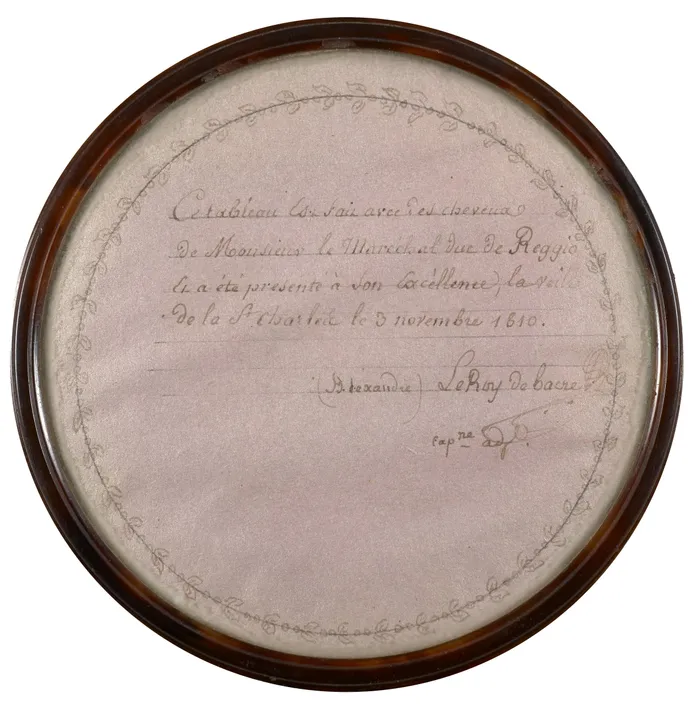 Ce tableau Est fait avec des cheveux
de Monsieur le Maréchal duc de Reggio
Et a été présenté à Son Excéllence, la veille
de la St Charles le 3 novembre 1810.
(Alexandre) LeRoy de bacre
Capne adjt.